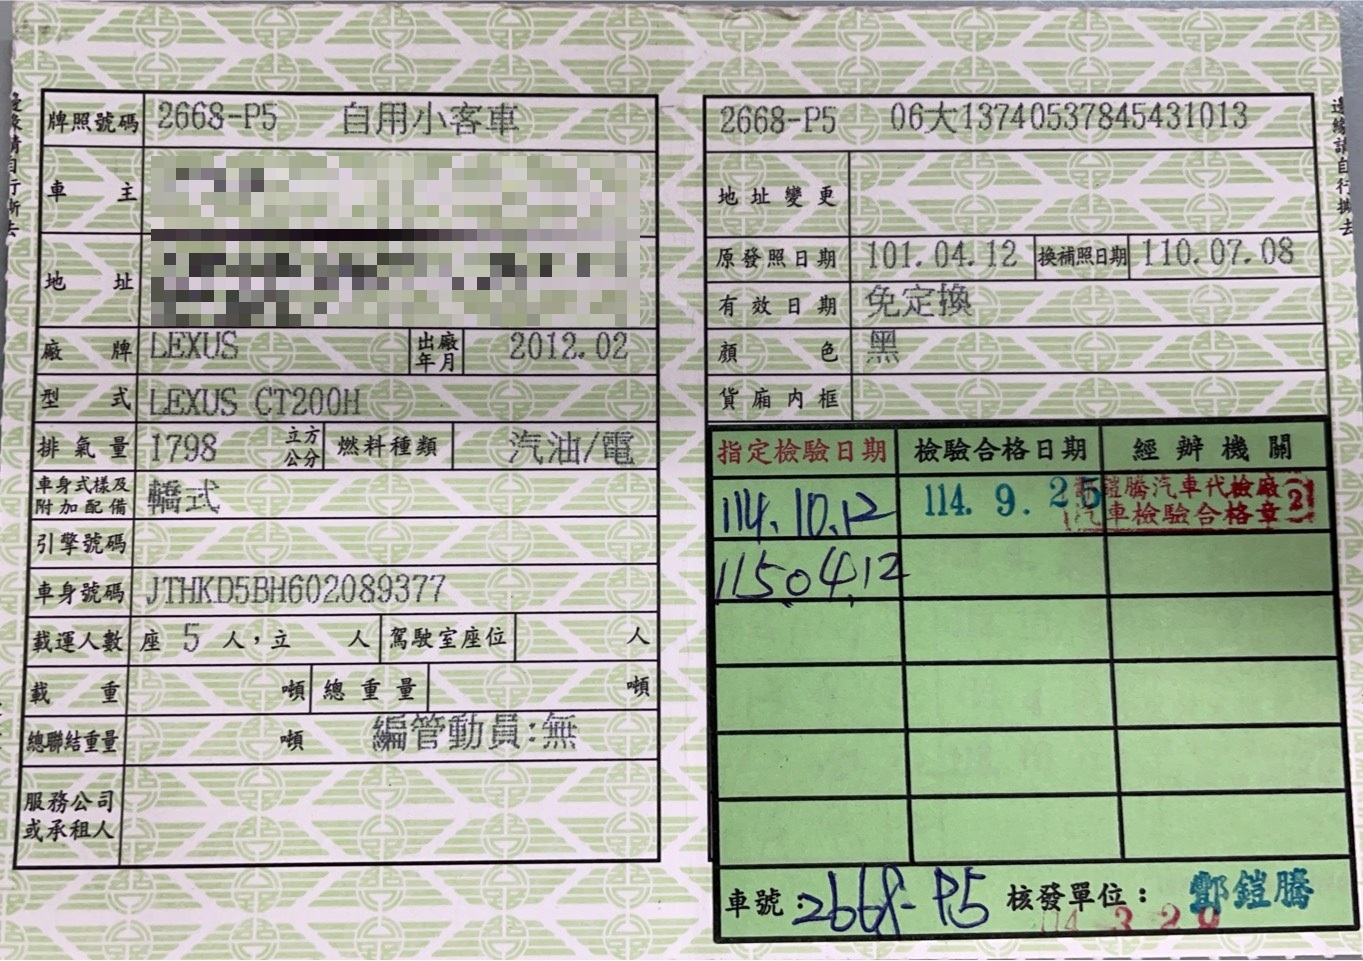 牌照號碼 2668-P5 自用小客車
車主
地址
廠牌 LEXUS 出廠年月 2012.02
型式 LEXUS CT200H
排氣量 1798 立方公分 燃料種類 汽油/電
車身式樣及附加配備 轎式
引擎號碼
車身號碼 JTHKD5BH602089377
載運人數 座 5 人，立 人 駕駛室座位 人
載重 噸 總重量 噸
總聯結重量 噸 編管動員:無
服務公司或承租人
2668-P5 06大13740537845431013
地址變更
原發照日期 101.04.12 換補照日期 110.07.08
有效日期 免定換
顏色 黑
貨廂內框
指定檢驗日期 檢驗合格日期 經辦機關
114.10.12 114.9.25 鎧騰汽車代檢廠
汽車檢驗合格章 2
115.04.12
車號:2668-P5 核發單位: 鄧鎧騰
114 3 20
邊緣請自行撕去